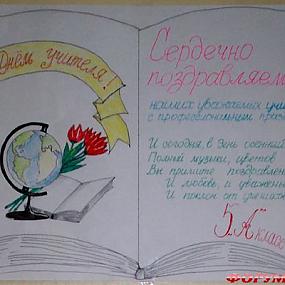 Днём учителя!
Сердечно
поздравляем
наших уважаемых
с профессиональным
И сегодня, в день осенний
Полный музыки, цветов
Вы примите
И любовь, и
И поклон от
5 "А" класс
ФОРУМ